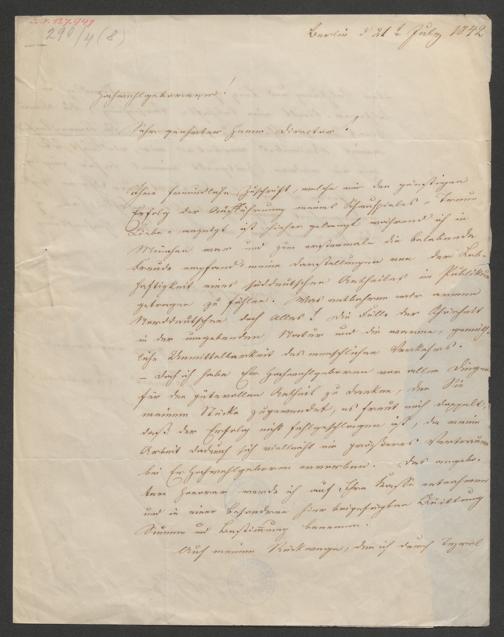 290/4 (8)
Berlin d 21t July 1842
Hochwohlgeborener!
Sehr geehrter Herr Director.
Ihre freundliche Zuschrift, welche mir den günstigen
Erfolg der Aufführung meines Schauspieles
Liebe angezeigt ist hieher gelangt während ich in
München war und zum erstenmale die belebende
Freude empfand meine Darstellungen von der Leb-
haftigkeit eines süddeutschen Antheiles im Publikum
getragen zu fühlen. Was entbehren wir armen
Norddeutschen doch Alles! die Fülle der Schönheit
in der umgebenden Natur und die warme, gemüth-
liche Unmittelbarkeit des menschlichen Verkehres.
– Doch ich habe Ew Hochwohlgeboren vor allen Dingen
für den gütevollen Antheil zu danken, den Sie
meinem Stücke zugewendet, es freut mich doppelt,
daß der Erfolg nicht fehlgeschlagen ist, da meine
Arbeit dadurch sich vielleicht ein größeres Vertrauen
bei Ew Hochwohlgeboren erworben. Das
Honorar werde ich auf Ihre Kasse entnehmen
und in einer besonderen hier beigefügten Quittung
Summe und Bestimmung benennen.
Auf meinem Rückwege, den ich durch Tyrol